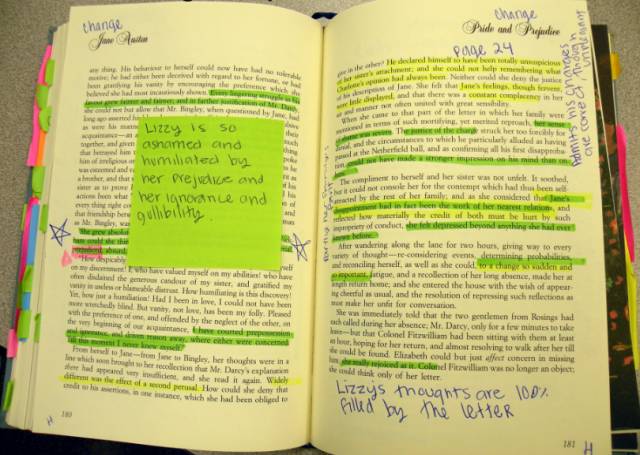 change
Jane Austen
any thing. His behaviour to herself could now have had no tolerable
motive; he had either been deceived with regard to her fortune, or had
been gratifying his vanity by encouraging the preference which she
believed she had most incautiously shown. Every lingering struggle in his
favour grew fainter and fainter; and in farther justification of Mr. Darcy,
she could not but allow that Mr. Bingley, when questioned by Jane, had
long ago asserted
as were his manners
acquaintance—an
together, and given
that betrayed him
him of irreligious or
was esteemed and
a brother, and that
sister as to prove
actions been what
every thing right
that friendship between
as Mr. Bingley, was
She grew absolutely
han could she think
prejudiced, absurd.
Lizzy is so
ashamed and
humiliated by
her prejudice and
her ignorance and
gullibility.
"How despicably
on my discernment! I, who have valued myself on my abilities! who have
often disdained the generous candour of my sister, and gratified my
vanity in useless or blameable distrust. How humiliating is this discovery!
Yet, how just a humiliation! Had I been in love, I could not have been
more wretchedly blind. But vanity, not love, has been my folly. Pleased
with the preference of one, and offended by the neglect of the other, on
the very beginning of our acquaintance, I have courted prepossession
and ignorance, and driven reason away, where either were concerned.
Till this moment I never knew myself."
From herself to Jane—from Jane to Bingley, her thoughts were in a
line which soon brought to her recollection that Mr. Darcy's explanation
there had appeared very insufficient, and she read it again. Widely
different was the effect of a second perusal. How could she deny that
credit to his assertions, in one instance, which she had been obliged to
180
H
change
Pride and Prejudice
page 24
give in the other? He declared himself to have been totally unsuspicious
of her sister's attachment; and she could not help remembering what
Charlotte's opinion had always been. Neither could she deny the justice
of his description of Jane. She felt that Jane's feelings, though fervent,
were little displayed, and that there was a constant complacency in her
air and manner not often united with great sensibility.
When she came to that part of the letter in which her family were
mentioned in terms of such mortifying, yet merited reproach, her sense
of shame was severe. The justice of the charge struck her too forcibly for
denial, and the circumstances to which he particularly alluded as having
passed at the Netherfield ball, and as confirming all his first disapprobation,
could not have made a stronger impression on his mind than on
hers.
The compliment to herself and her sister was not unfelt. It soothed,
but it could not console her for the contempt which had thus been self-
attracted by the rest of her family; and as she considered that Jane's
disappointment had in fact been the work of her nearest relations, and
reflected how materially the credit of both must be hurt by such
impropriety of conduct, she felt depressed beyond any thing she had ever
known before.
After wandering along the lane for two hours, giving way to every
variety of thought—re-considering events, determining probabilities,
and reconciling herself, as well as she could, to a change so sudden and
so important, fatigue, and a recollection of her long absence, made her at
length return home; and she entered the house with the wish of appear-
ing cheerful as usual, and the resolution of repressing such reflections as
must make her unfit for conversation.
She was immediately told that the two gentlemen from Rosings had
each called during her absence; Mr. Darcy, only for a few minutes to take
leave—but that Colonel Fitzwilliam had been sitting with them at least
an hour, hoping for her return, and almost resolving to walk after her till
she could be found. Elizabeth could but just affect concern in missing
him; she really rejoiced at it. Colonel Fitzwilliam was no longer an object;
she could think only of her letter.
Lizzy's thoughts are 100%
filled by the letter
181
H